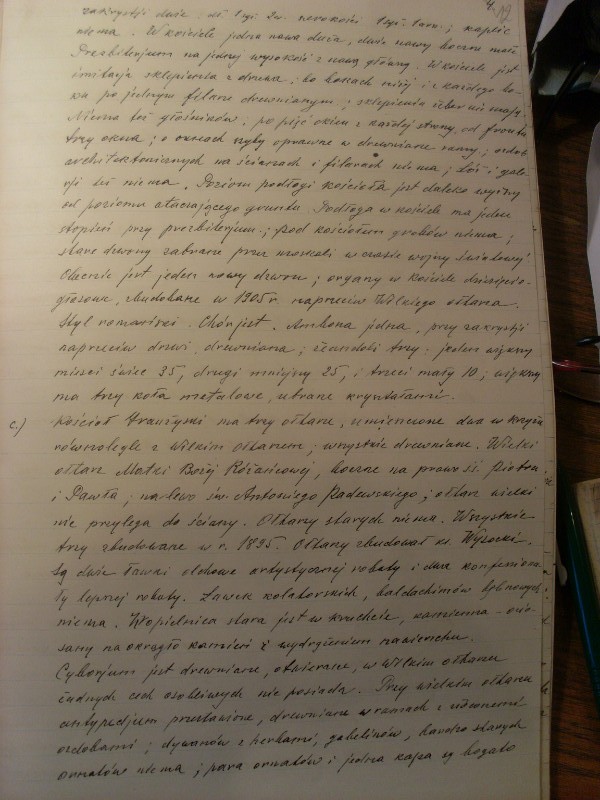 zakrystji dwie
niema. W kościele jedna nawa duża, dwie nawy boczne małe
Prezbiterjum na jednej wysokości z nawą główną. W kościele jest
imitacja sklepienia z drzewa; po bokach niżej i z każdego bo-
ku po jednym filarze drewnianym; sklepienia żeber nie mają.
Niema też głośników, po pięć okien z każdej strony, od frontu
trzy okna; w oknach szyby oprawne w drewniane ramy; ozdób
architektonicznych na ścianach i filarach niema; Lóż i gale-
rji też niema. Poziom podłogi kościoła jest daleko wyższy
od poziomu otaczającego gruntu. Podłoga w kościele ma jeden
stopień przy prezbiterjum; pod kościołem grobów niema;
stare dzwony zabrane przez moskali w czasie wojny światowej
Obecnie jest jeden nowy dzwon; organy w kościele dziesięcio-
głosowe, zbudowane w 1905 r. naprzeciw Wielkiego ołtarza.
Styl romański. Chór jest. Ambona jedna, przy zakrystji
naprzeciw drzwi, drewniana; żyrandoli trzy: jeden większy
mieści świec 35, drugi mniejszy 25, i trzeci mały 10; większy
ma trzy koła metalowe, ubrane kryształami.
c.) Kościół ma trzy ołtarze, umieszczone dwa w krzyżu
równolegle z Wielkim ołtarzem; wszystkie drewniane. Wielki
ołtarz Matki Bożej Różańcowej, boczne na prawo śś. Piotra
i Pawła; na lewo św. Antoniego Padewskiego; ołtarz wielki
nie przylega do ściany. Ołtarzy starych niema. Wszystkie
trzy zbudowane w r. 1895. Ołtarzy zbudował ks. Wysocki.
Są dwie ławki olchowe artystycznej roboty i dwa konfesjona-
ły lepszej roboty. Ławek kolatorskich, baldachimów
niema. Kropielnica stara jest w kruchcie, kamienna - cio-
sany na okrągło kamień z wydrążeniem na wierzchu.
Cyborjum jest drewniane, otwierane, w Wielkim ołtarzu
żadnych cech osobliwych nie posiada. Przy wielkim ołtarzu
antypedjum przestawione, drewniane w ramach z
ozdobami; dywanów z herbami, gobelinów, bardzo starych
ornatów niema; para ornatów i jedna kapa są bogato